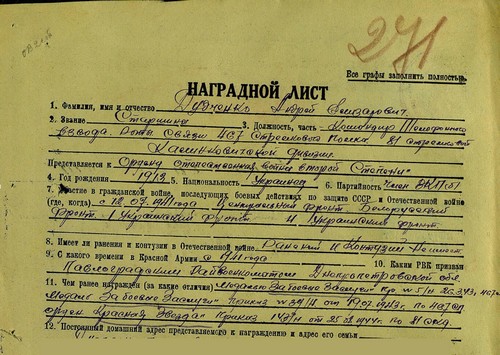 271
Все графы заполнить полностью.
НАГРАДНОЙ ЛИСТ
1. Фамилия, имя и отчество Дудченко Андрей Елизарович
2. Звание Старшина 3. Должность, часть Командир Телефонного
взвода Роты Связи 467 Стрелкового Полка 81 стрелковой
Калинковичской дивизии.
Представляется к Ордену отечественная война второй степени
4. Год рождения 1913 5. Национальность Украинец 6. Партийность Член ВКП(б)
7. Участие в гражданской войне, последующих боевых действиях по защите СССР и Отечественной войне
(где, когда) с 12.07.41 года Центральный фронт Белорусский
Фронт 1 Украинский фронт и Украинский фронт.
8. Имеет ли ранения и контузии в Отечественной войне Ранений и контузий не имеет
9. С какого времени в Красной Армии с 1941 года 10. Каким РВК призван
Павлоградским Райвоенкоматом Днепропетровской обл.
11. Чем ранее награжден (за какие отличия) Медалью За боевые Заслуги
Медаль За боевые Заслуги приказ 19.07.1943г. по 467 сп
орден Красная Звезда Приказ по 81 сд
12. Постоянный домашний адрес представляемого к награждению и адрес его семьи